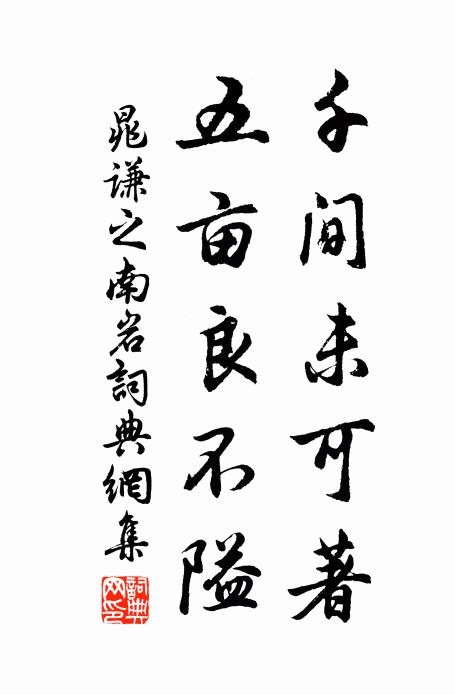 千间未可著
五亩良不隘
晁谦之南岩詞典網集
詞典网印